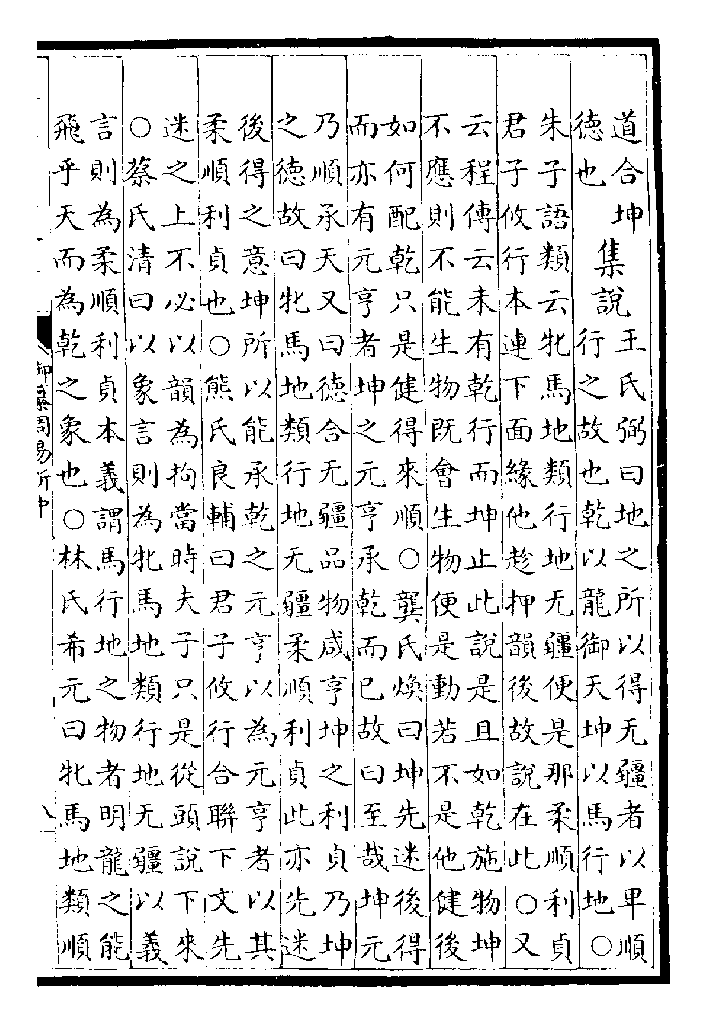 道合坤
德也
集說
王氏弼曰地之所以得无疆者以卑順
行之故也乾以龍御天坤以馬行地○
朱子語類云牝馬地類行地无疆便是那柔順利貞
君子攸行本連下面緣他趂押韻後故說在此○又
云程傳云未有乾行而坤止此說是且如乾施物坤
不應則不能生物既會生物便是動若不是他健後
如何配乾只是健得來順○龔氏煥曰坤先迷後得
而亦有元亨者坤之元亨承乾而已故曰至哉坤元
乃順承天又曰德合无疆品物咸亨坤之利貞乃坤
之德故曰牝馬地類行地无疆柔順利貞此亦先迷
後得之意坤所以能承乾之元亨以為元亨者以其
柔順利貞也○熊氏良輔曰君子攸行合聯下文先
迷之上不必以韻為拘當時夫子只是從頭說下來
○蔡氏清曰以象言則為牝馬地類行地无疆以義
言則為柔順利貞本義謂馬行地之物者明龍之能
飛乎天而為乾之象也○林氏希元曰牝馬地類順
御纂周易折中